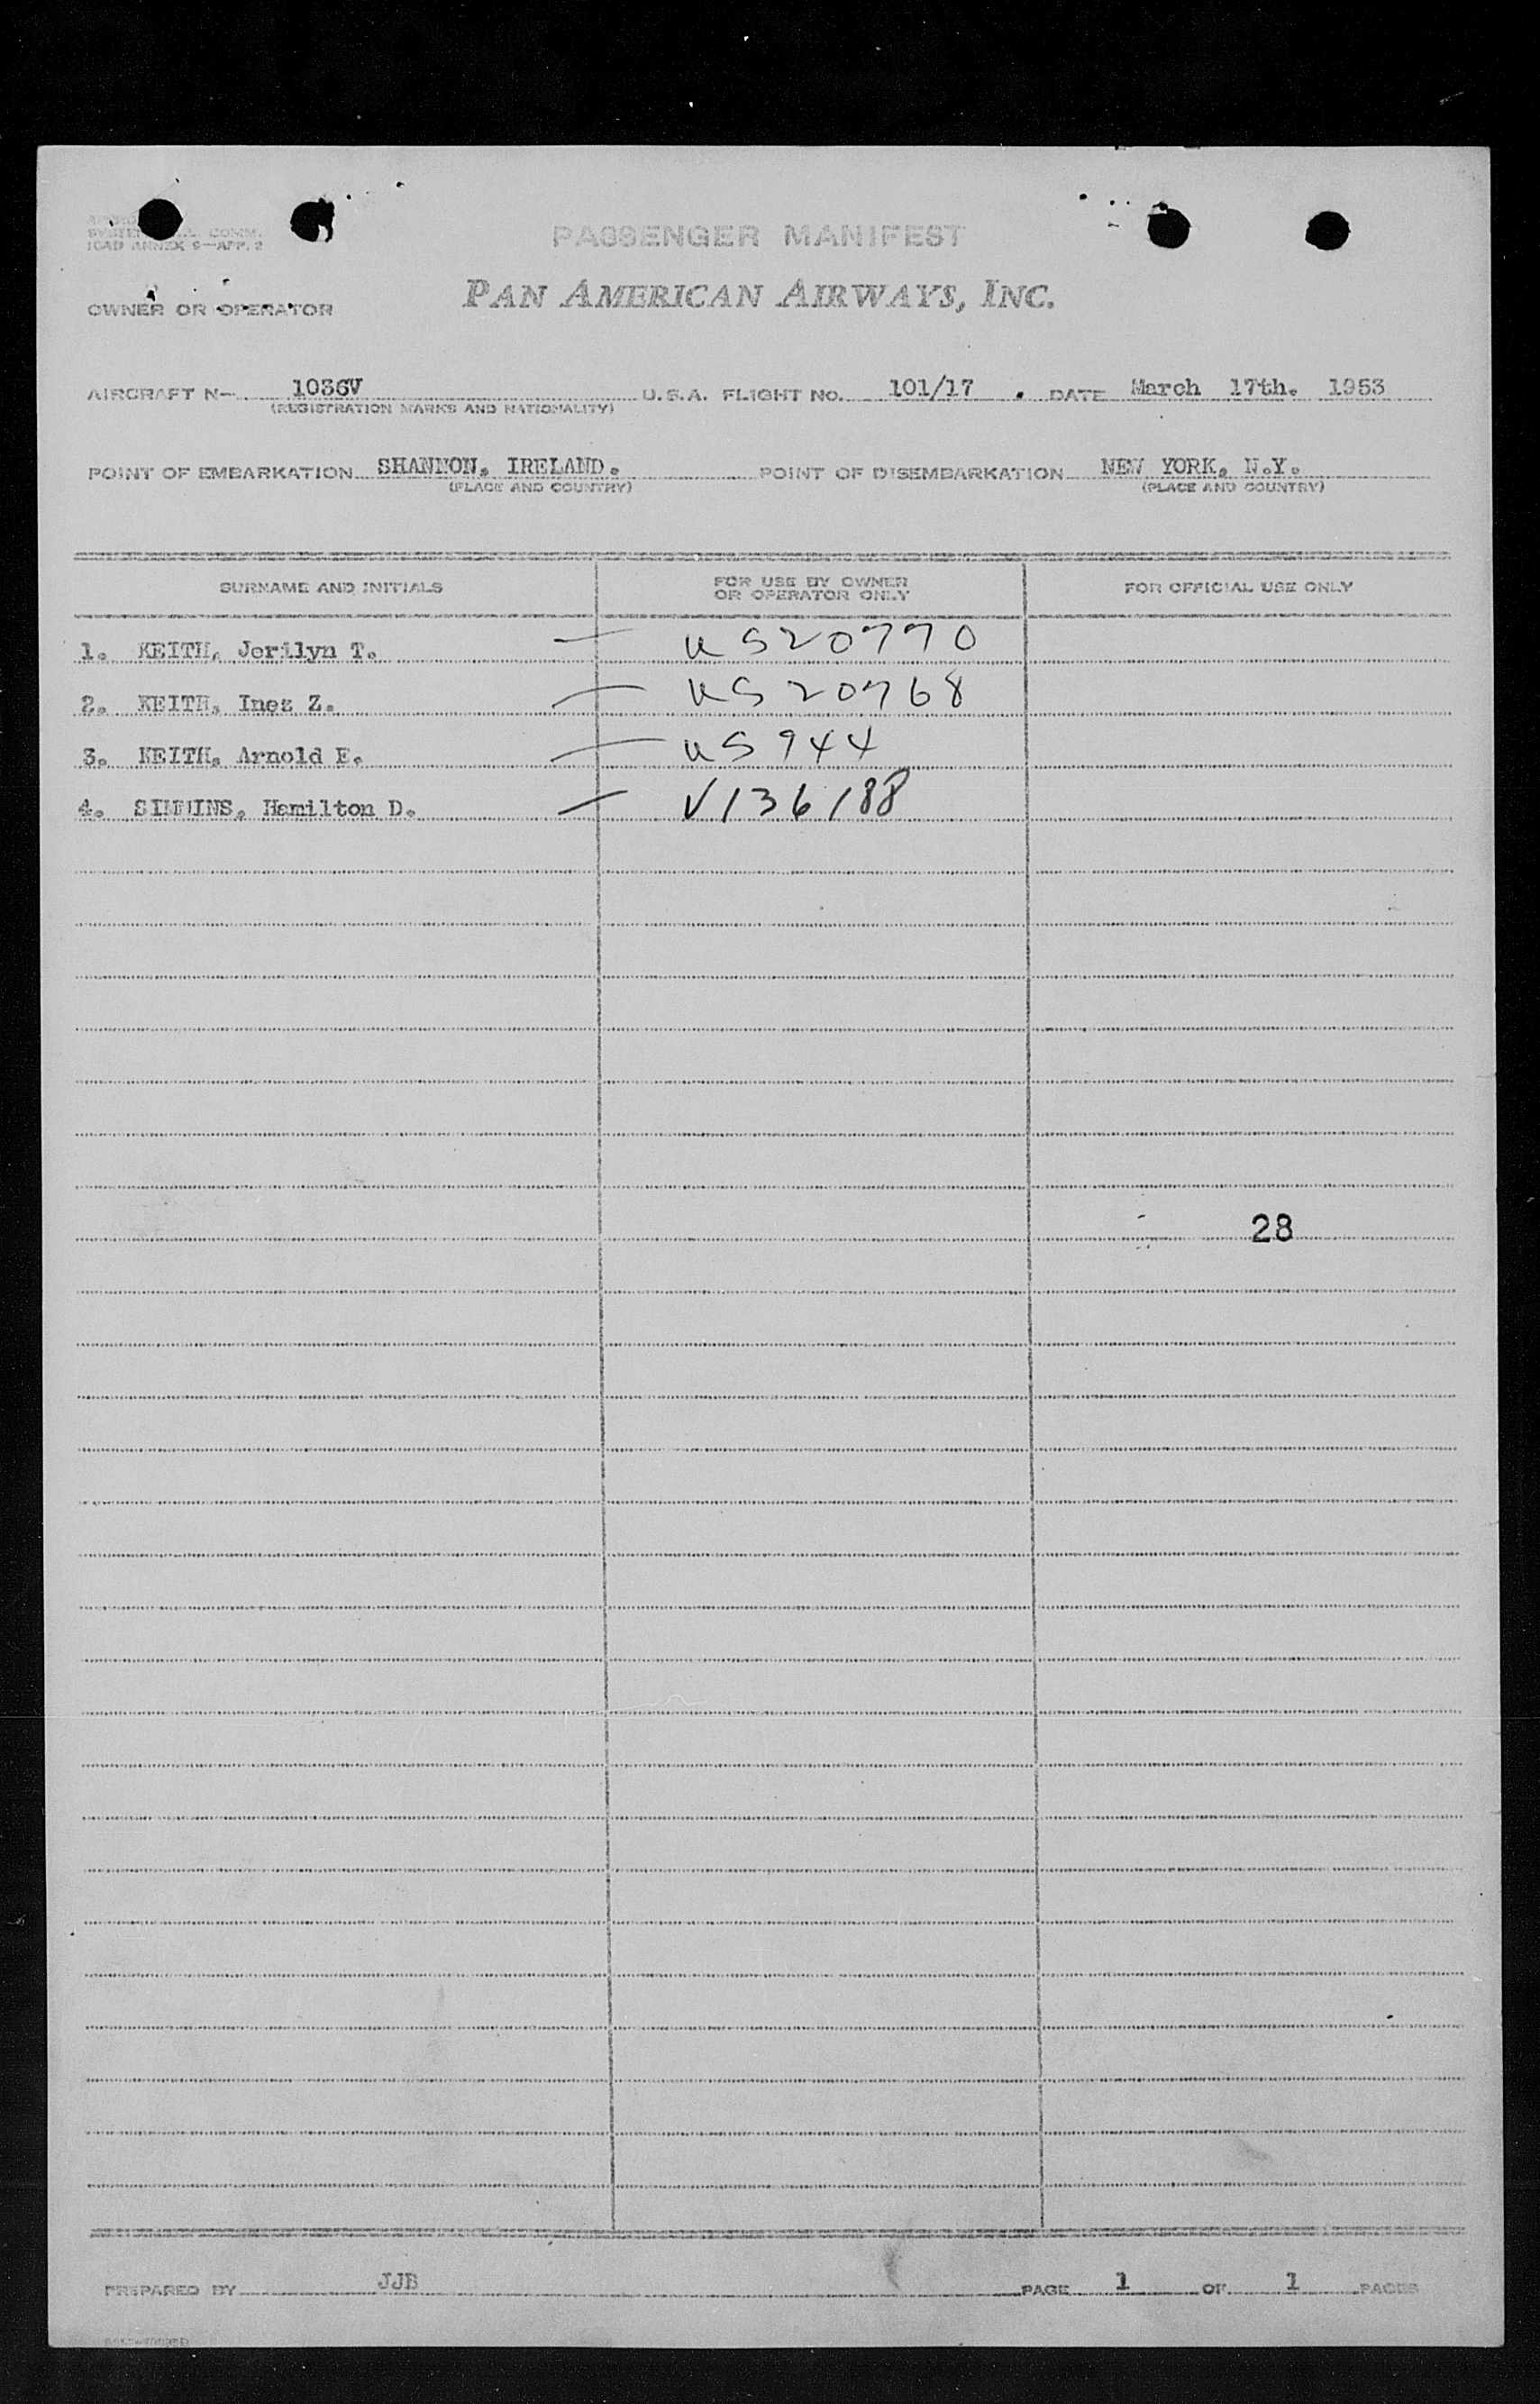 ICAO ANNEX 9—APP. 2
PASSENGER MANIFEST
OWNER OR OPERATOR PAN AMERICAN AIRWAYS, INC.
AIRCRAFT N- 1036V U.S.A. FLIGHT NO. 101/17 . DATE March 17th. 1953
(REGISTRATION MARKS AND NATIONALITY)
POINT OF EMBARKATION SHANNON. IRELAND. POINT OF DISEMBARKATION NEW YORK, N.Y.
(PLACE AND COUNTRY) (PLACE AND COUNTRY)
SURNAME AND INITIALS FOR USE BY OWNER OR OPERATOR ONLY FOR OFFICIAL USE ONLY
1. KEITH, Jerilyn T. — US20770
2. KEITH, Inez Z. — US20768
3. KEITH, Arnold E. — US944
4. SIMMINS, Hamilton D. — V136188
28
PREPARED BY JJB PAGE 1 OF 1 PAGES